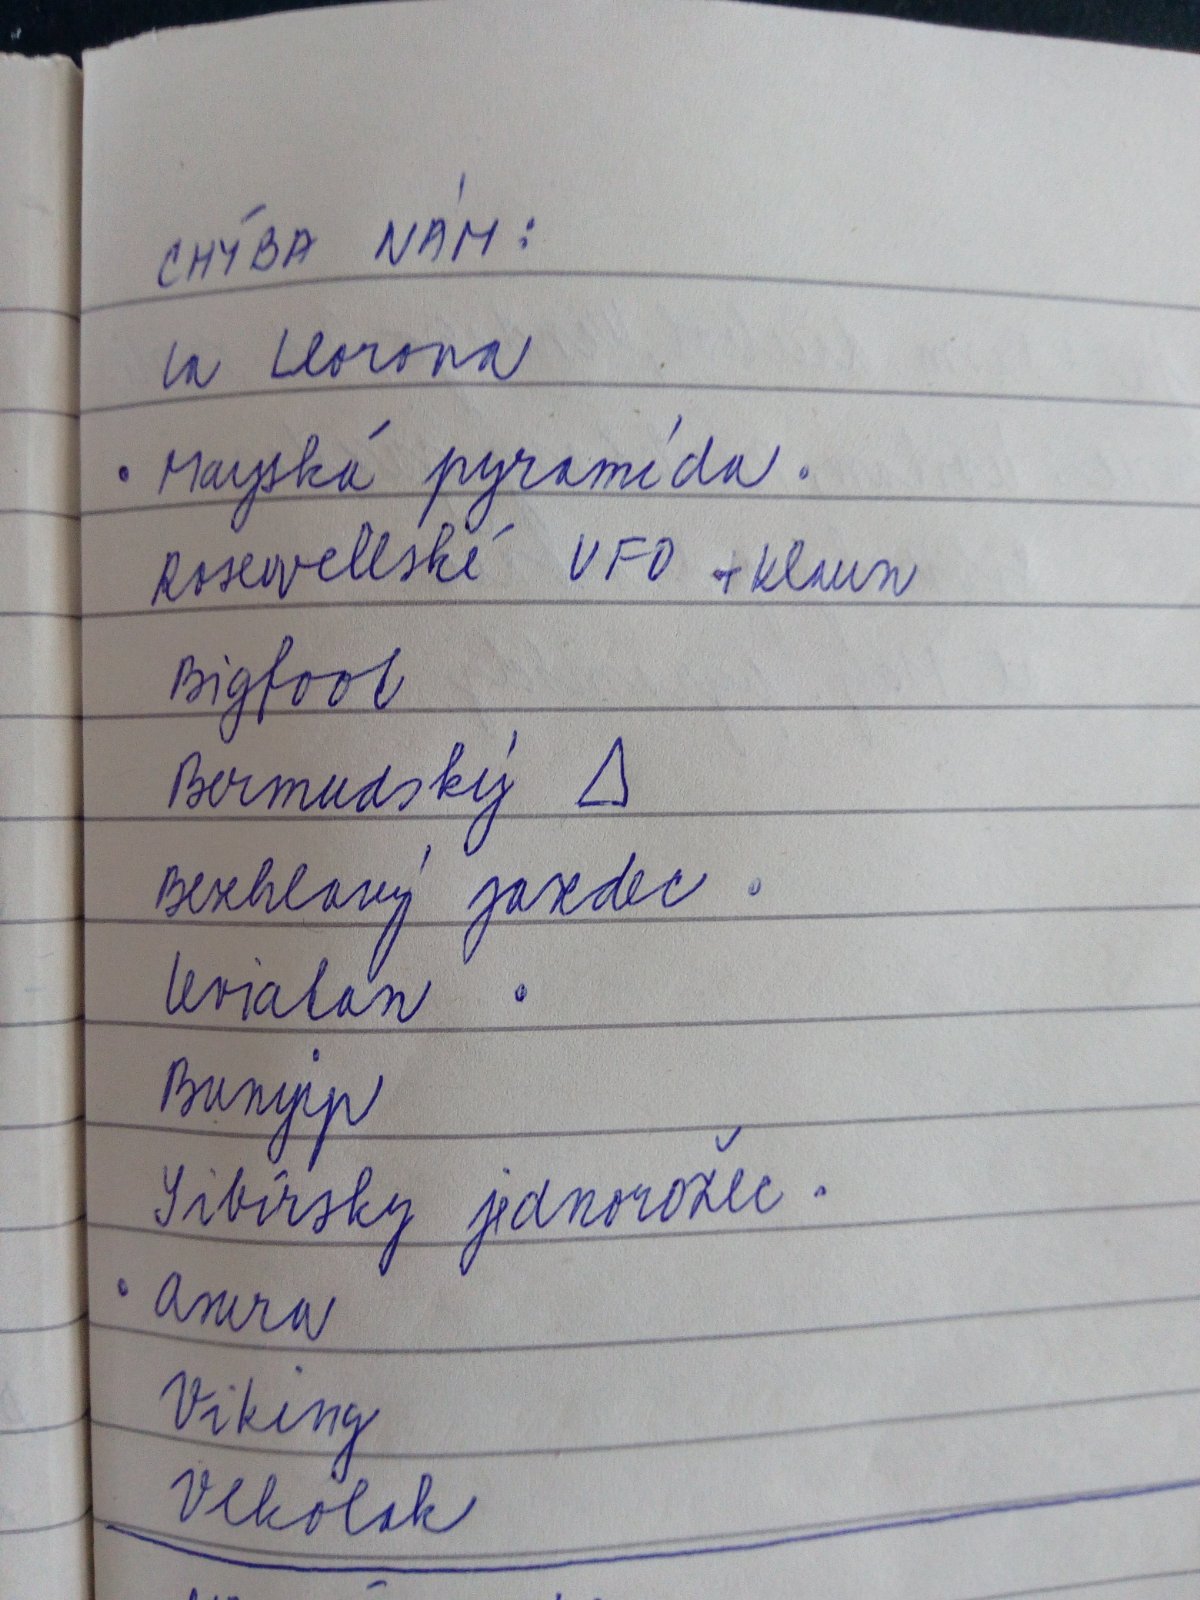 CHÝBA NÁM:
La Llorona
• Mayská pyramída •
Roswellské UFO + klaun
Bigfoot
Bermudský △
Bezhlavý jazdec •
Leviatan •
Bunyip
Sibírsky jednorožec •
• Anura
Viking
Vlkolak